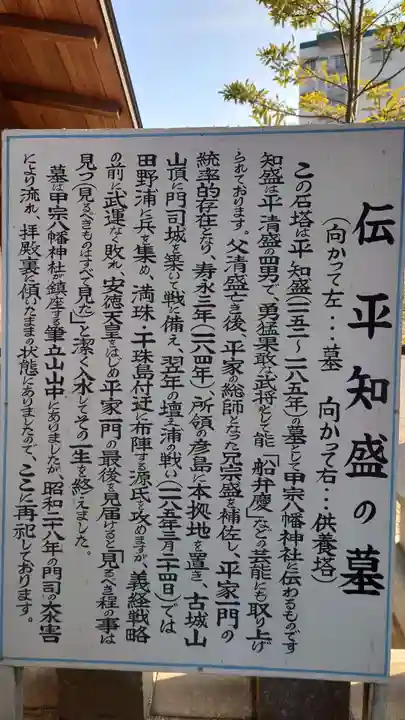 伝 平知盛の墓
(向かって左…墓 向かって右…供養塔)
この石塔は平 知盛(一一五二～一一八五年)の墓として甲宗八幡神社に伝わるものです
知盛は平 清盛の四男で、勇猛果敢な武将として能「船弁慶」などの芸能にも取り上げ
られております。父清盛亡き後、平家の総師となった兄宗盛を補佐し、平家一門の
統率的存在となり、寿永三年(一一八四年)所領の彦島に本拠地を置き、古城山
山頂に門司城を築いて戦に備え、翌年の壇之浦の戦い(一一八五年三月二十四日)では
田野浦に兵を集め、満珠・干珠島付近に布陣する源氏を攻めますが、義経戦略
の前に武運なく敗れ、安徳天皇をはじめ平家一門の最後を見届けると「見るべき程の事は
見つ(見るべきものはすべて見た)」と潔く入水してその一生を終えました。
墓は甲宗八幡神社が鎮座する筆立山山中にありましたが、昭和二十八年の門司の大水害
により流れ、拝殿裏に傾いたままの状態にありましたので、ここに再祀しております。